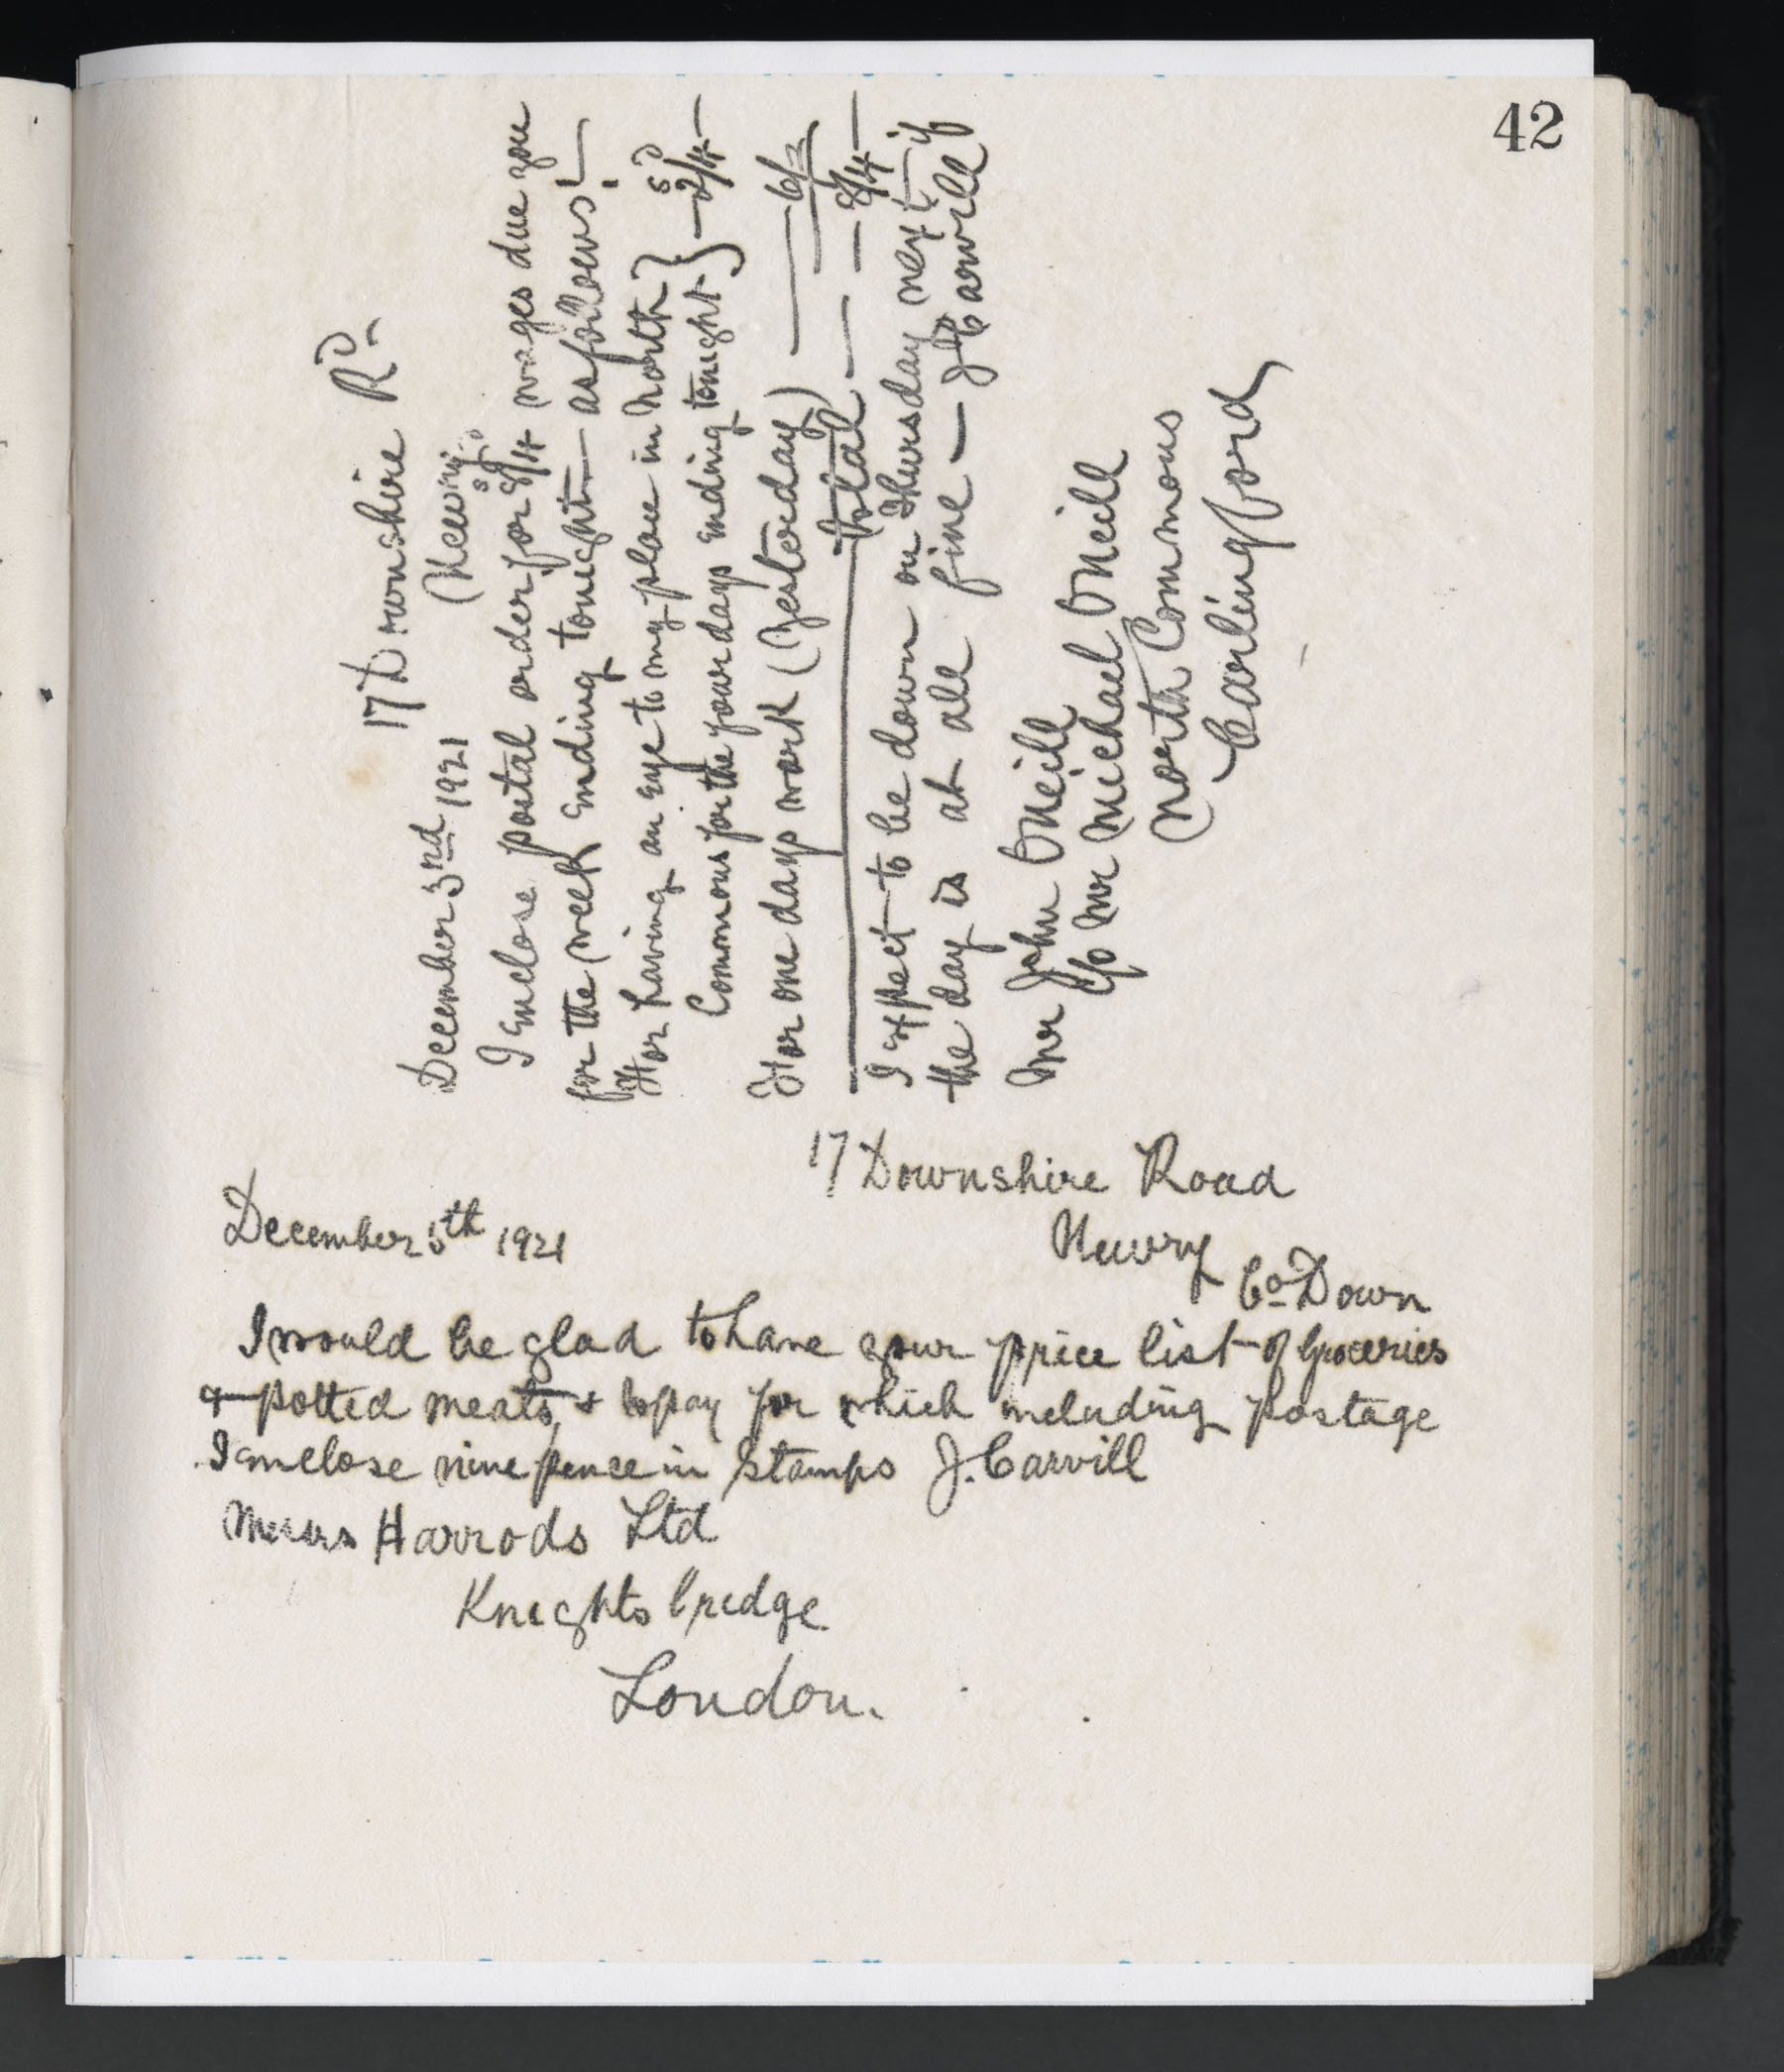 42
17 Downshire Rd
Newry
December 3rd 1921
I Enclose postal order for 8/4 wages due you
for the week Ending tonight — as follows! —
For having an Eye to my place in North } s d
Commons for the four days Ending tonight } — 2/4 —
For one days work (Yesterday) — 6/
Total — — — 8/4 —
I Expect to be down on Thursday next if
the day is at all fine — J Carvill
Mr John ONeill
C/o Mr Michael ONeill
North Commons
Carlingford
17 Downshire Road
December 5th 1921
Newry
Co Down
I would be glad to have your price list of Groceries
& potted meats, & to pay for which including Postage
I Enclose nine pence in Stamps J. Carvill
Messrs Harrods Ltd
Knightsbridge
London.